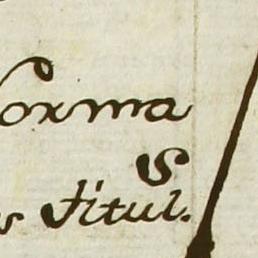 Norma
S
s Titul.